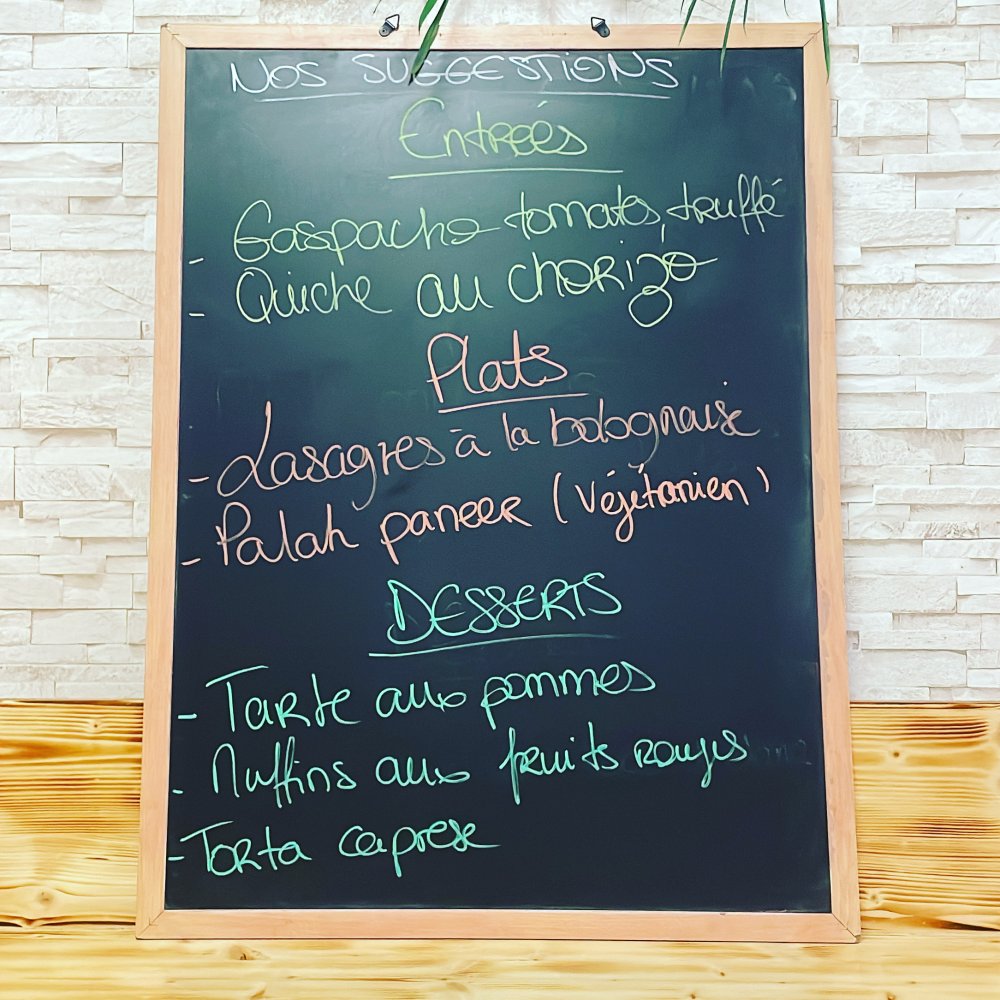 NOS SUGGESTIONS
Entreés
- Gaspacho tomates, truffé
- Quiche au chorizo
Plats
- Lasagnes à la bolognaise
- Palak paneer (Végétarien)
DESSERTS
- Tarte aux pommes
- Muffins aux fruits rouges
- Torta caprese